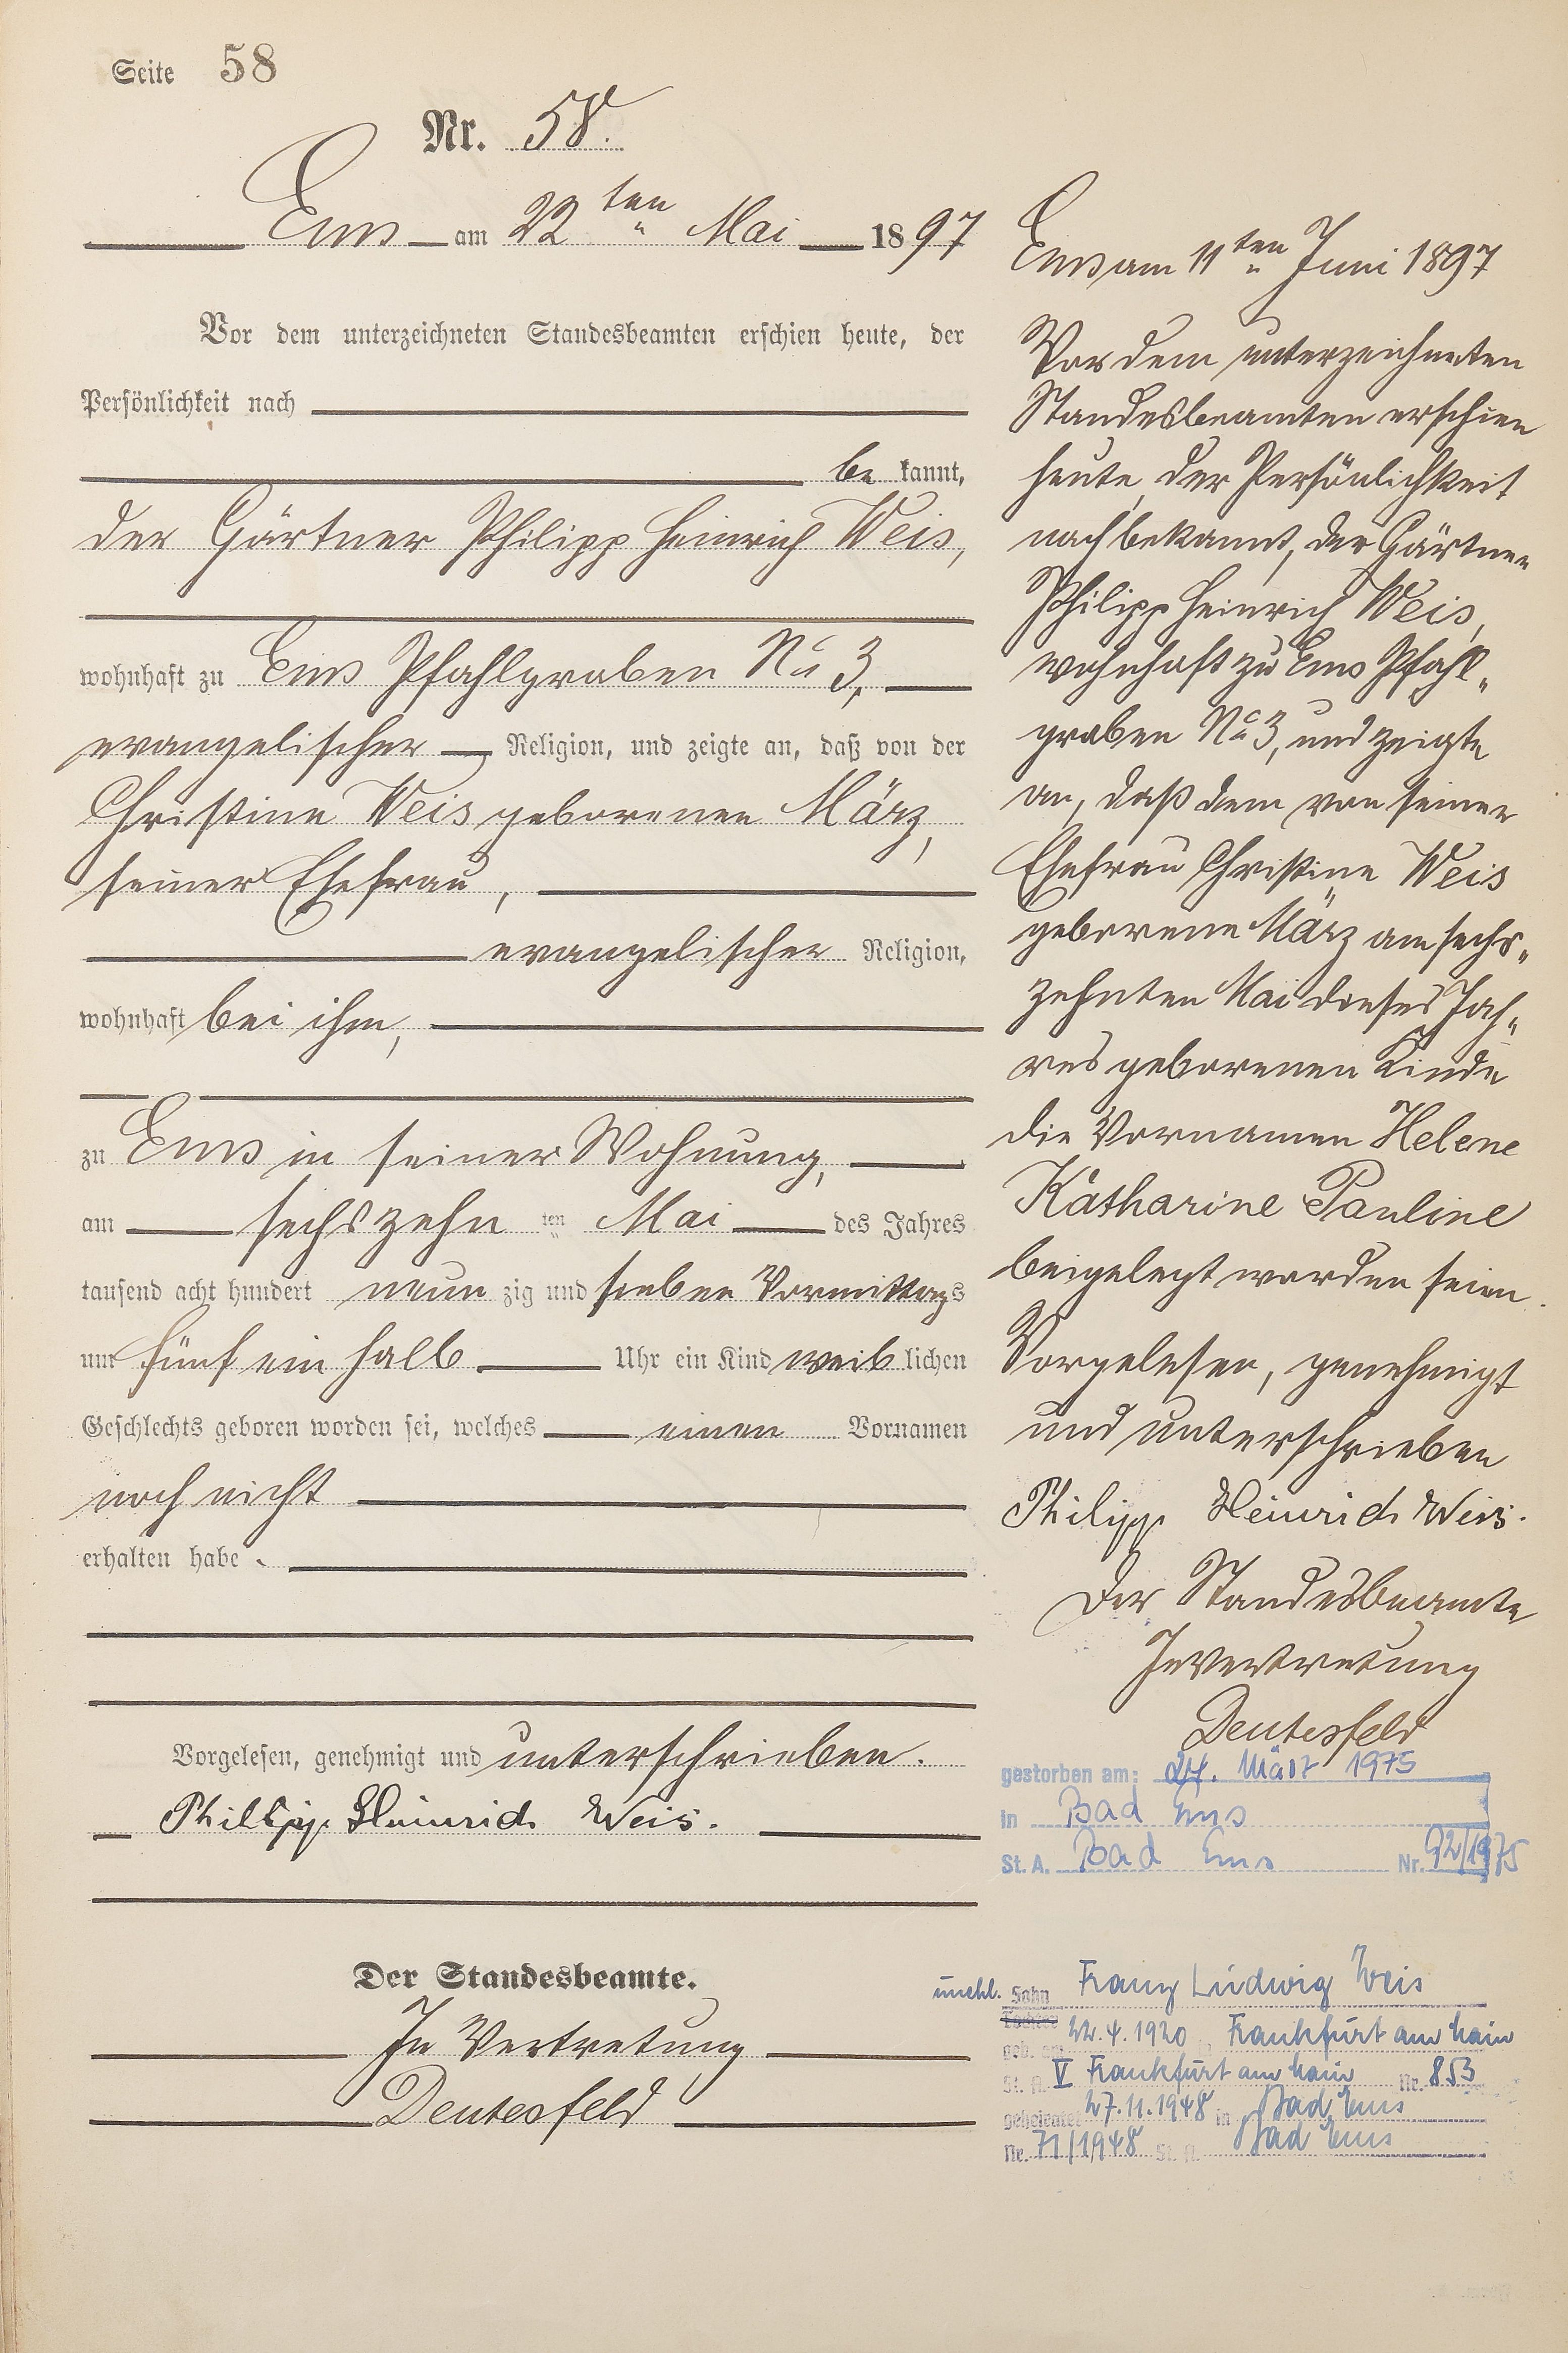 Seite 58
Nr. 58.
Ems am 22ten Mai 1897
Vor dem unterzeichneten Standesbeamten erschien heute, der
Persönlichkeit nach
be kannt,
der Gärtner Philipp Heinrich Weis,
wohnhaft zu Ems Pfahlgraben No 3,
evangelischer Religion, und zeigte an, daß von der
Christine Weis geborenen März,
seiner Ehefrau,
evangelischer Religion,
wohnhaft bei ihm,
zu Ems in seiner Wohnung,
am sechszehn ten Mai des Jahres
tausend acht hundert neun zig und sieben Vormittags
um fünf ein halb Uhr ein Kind weib lichen
Geschlechts geboren worden sei, welches einen Vornamen
noch nicht
erhalten habe.
Vorgelesen, genehmigt und unterschrieben.
Philipp Heinrich Weis.
Der Standesbeamte.
In Vertretung
Deutesfeld
Ems am 11ten Juni 1897
Vor dem unterzeichneten
Standesbeamten erschien
heute, der Persönlichkeit
nach bekannt, der Gärtner
Philipp Heinrich Weis,
wohnhaft zu Ems Pfahl„
graben No 3, und zeigte
an, daß dem von seiner
Ehefrau Christine Weis
geborene März am sechs„
zehnten Mai dieses Jah„
res geborenen Kinde
die Vornamen Helene
Katharine Pauline
beigelegt worden seien.
Vorgelesen, genehmigt
und unterschrieben
Philipp Heinrich Weis.
Der Standesbeamte
In Vertretung
Deutesfeld
gestorben am: 24. März 1975
in Bad Ems
St. A. Bad Ems Nr. 92/1975
unehl. Sohn Franz Ludwig Weis
Tochter
geb. am 22.4.1920 in Frankfurt am Main
St. A. V Frankfurt am Main Nr. 853
geheiratet 27.11.1948 in Bad Ems
Nr. 71/1948 St. A. Bad Ems